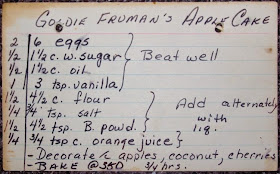 GOLDIE FRUMAN'S APPLE CAKE
2 | 6 eggs
1/2 | 1 1/2 c. w. sugar } Beat well
1/2 | 1 1/2 c. oil
1 | 3 tsp. vanilla
1 1/2 | 4 1/2 c. flour } Add alternately
1/4 | 3/4 tsp. salt with
1 1/2 | 4 1/2 tsp. B. powd. liq.
1/4 | 3/4 tsp c. orange juice }
- Decorate c apples, coconut, cherries
- BAKE @ 350 3/4 hrs.